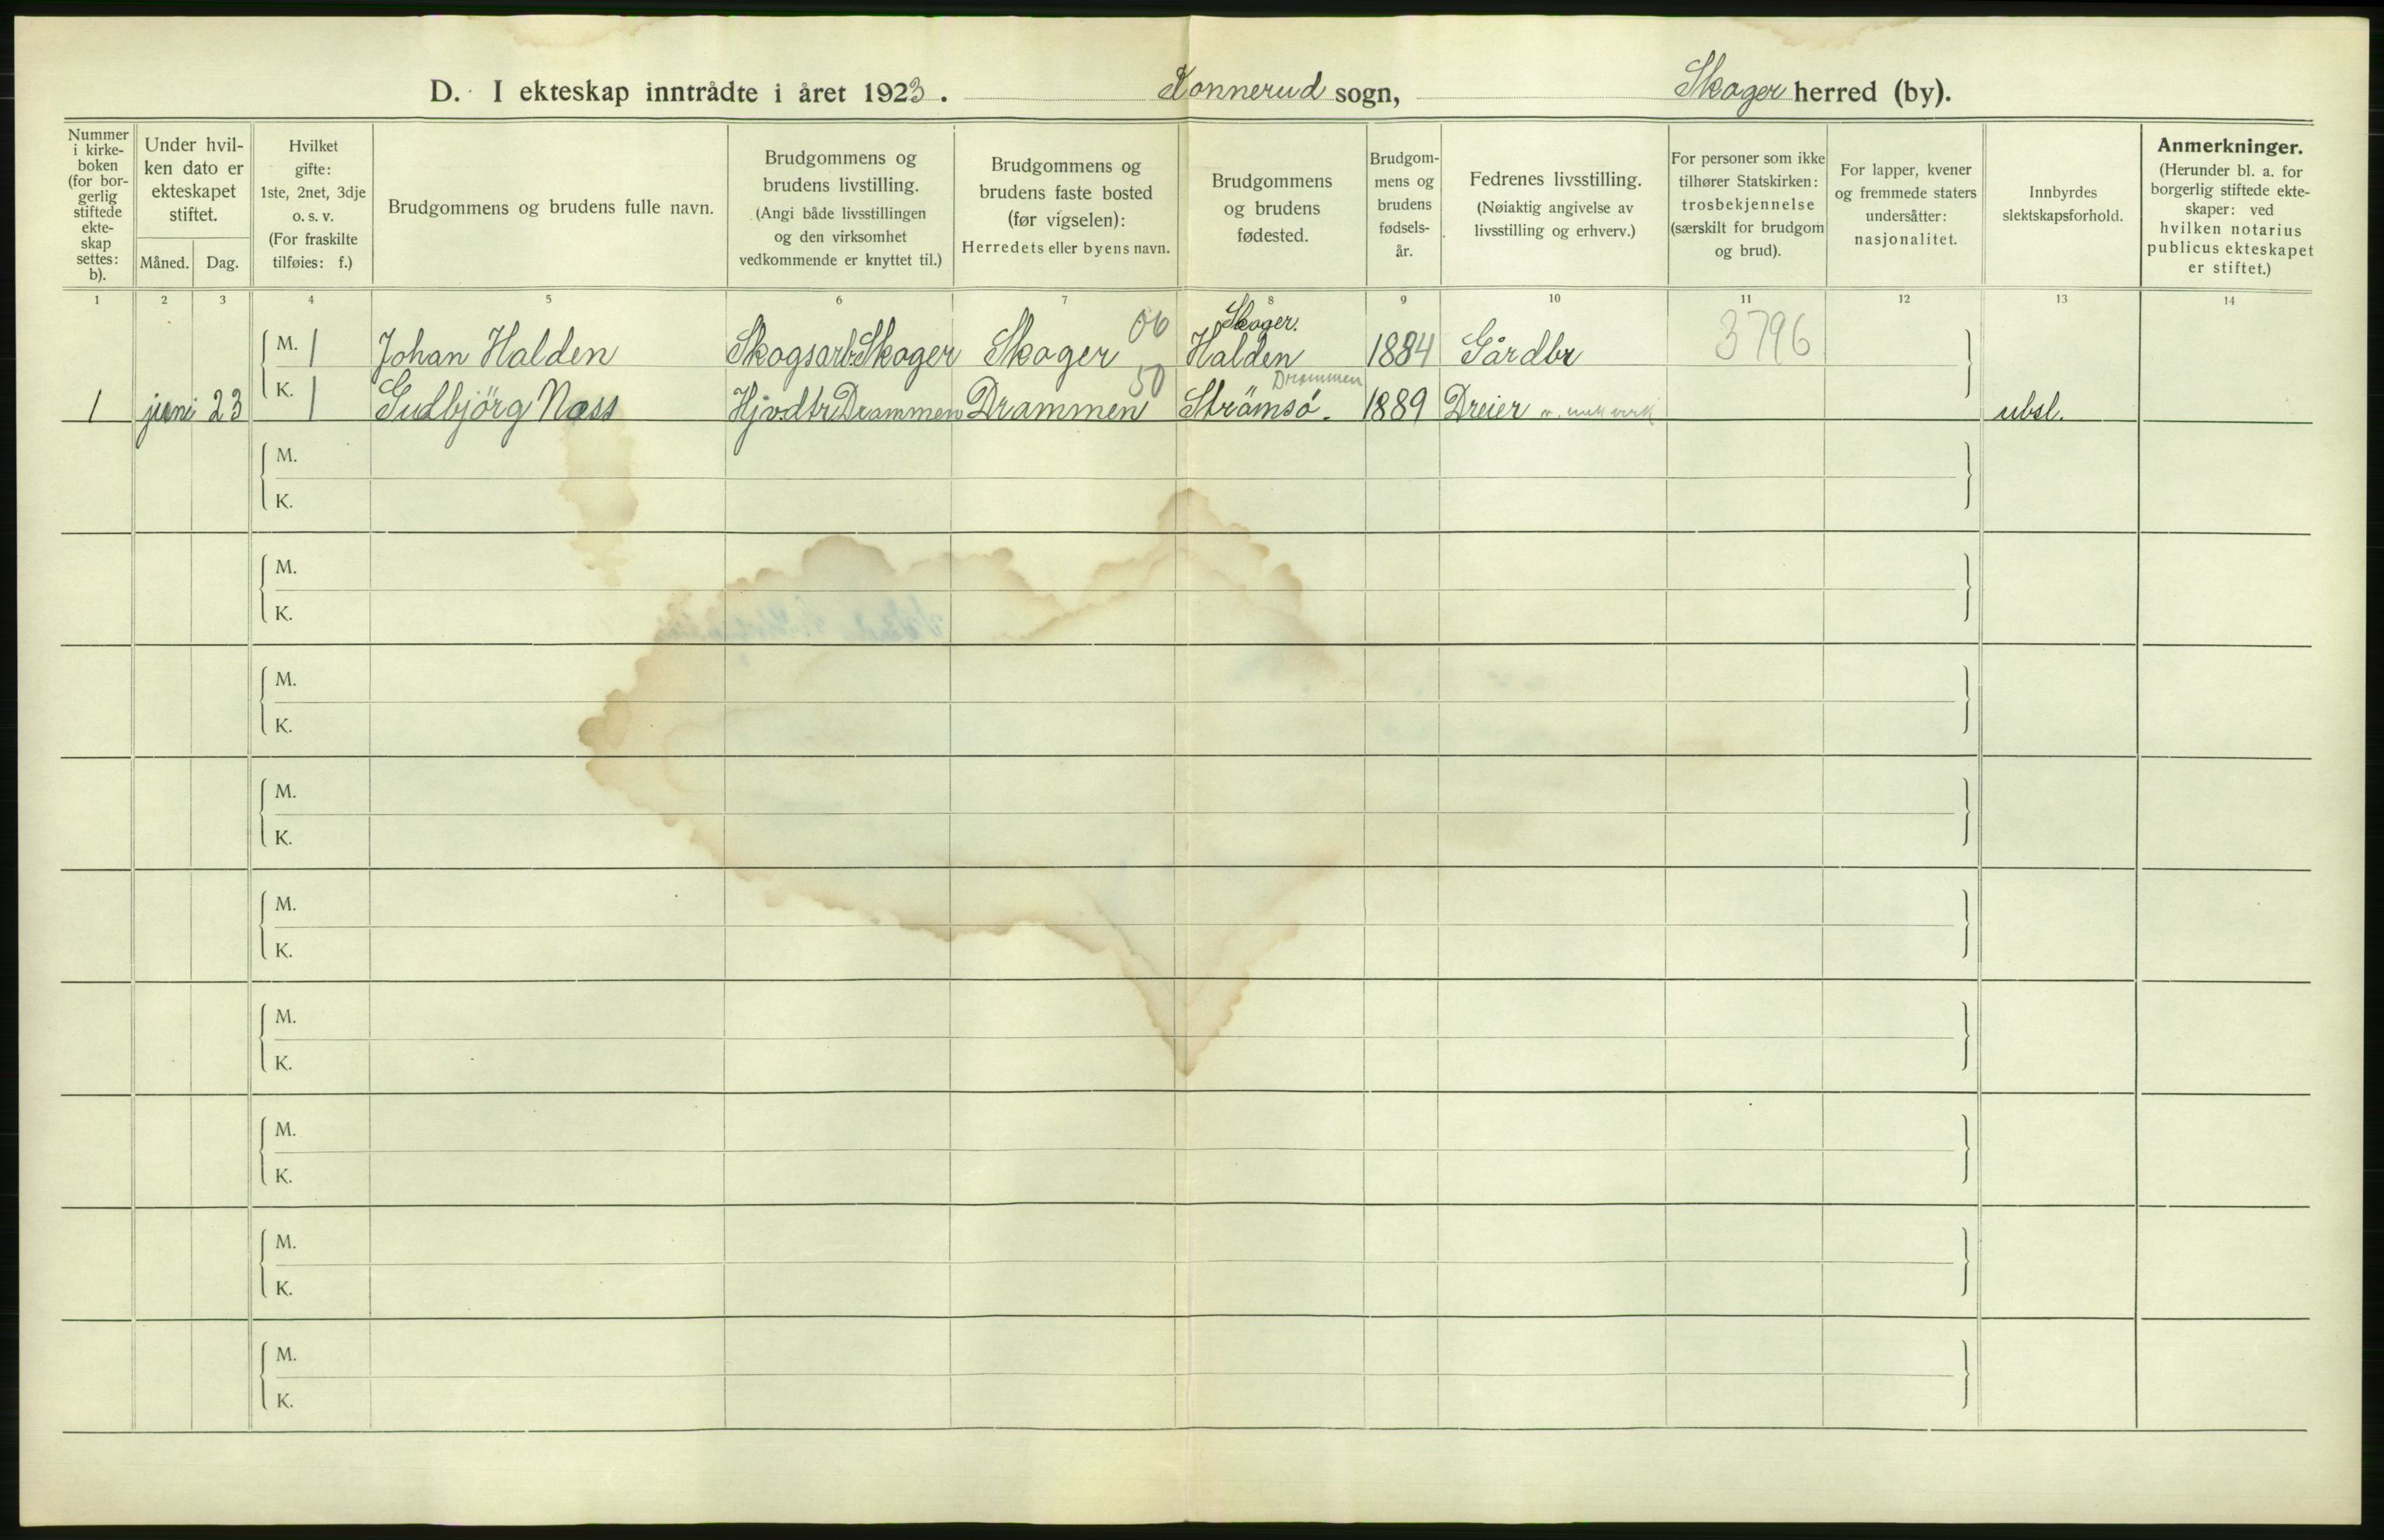 D. I ekteskap inntrådte i året 1923. Konnerud sogn, Skoger herred (by).
Nummer i kirke- boken (for bor- gerlig stiftede ekte- skap settes: b).
Under hvil- ken dato er ekteskapet stiftet.
Måned. Dag.
Hvilket gifte: 1ste, 2net, 3dje o. s. v. (For fraskilte tilføies: f.)
Brudgommens og brudens fulle navn.
Brudgommens og brudens livstilling. (Angi både livsstillingen og den virksomhet vedkommende er knyttet til.)
Brudgommens og brudens faste bosted (før vigselen): Herredets eller byens navn.
Brudgommens og brudens fødested.
Brudgom- mens og brudens fødsels- år.
Fedrenes livsstilling. (Nøiaktig angivelse av livsstilling og erhverv.)
For personer som ikke tilhører Statskirken: trosbekjennelse (særskilt for brudgom og brud).
For lapper, kvener og fremmede staters undersåtter: nasjonalitet.
Innbyrdes slektskapsforhold.
Anmerkninger. (Herunder bl. a. for borgerlig stiftede ekte- skaper: ved hvilken notarius publicus ekteskapet er stiftet.)
1 2 3 4 5 6 7 8 9 10 11 12 13 14
Skoger.
M. 1 Johan Halden Skogsarb. Skoger Skoger 06 Halden 1884 Gårdbr 3796
Drammen
1 juni 23 K. 1 Gudbjörg Næss Hjvdtr Drammen Drammen 50 Strömsö. 1889 Dreier ubsl.
M.
K.
M.
K.
M.
K.
M.
K.
M.
K.
M.
K.
M.
K.
M.
K.
M.
K.